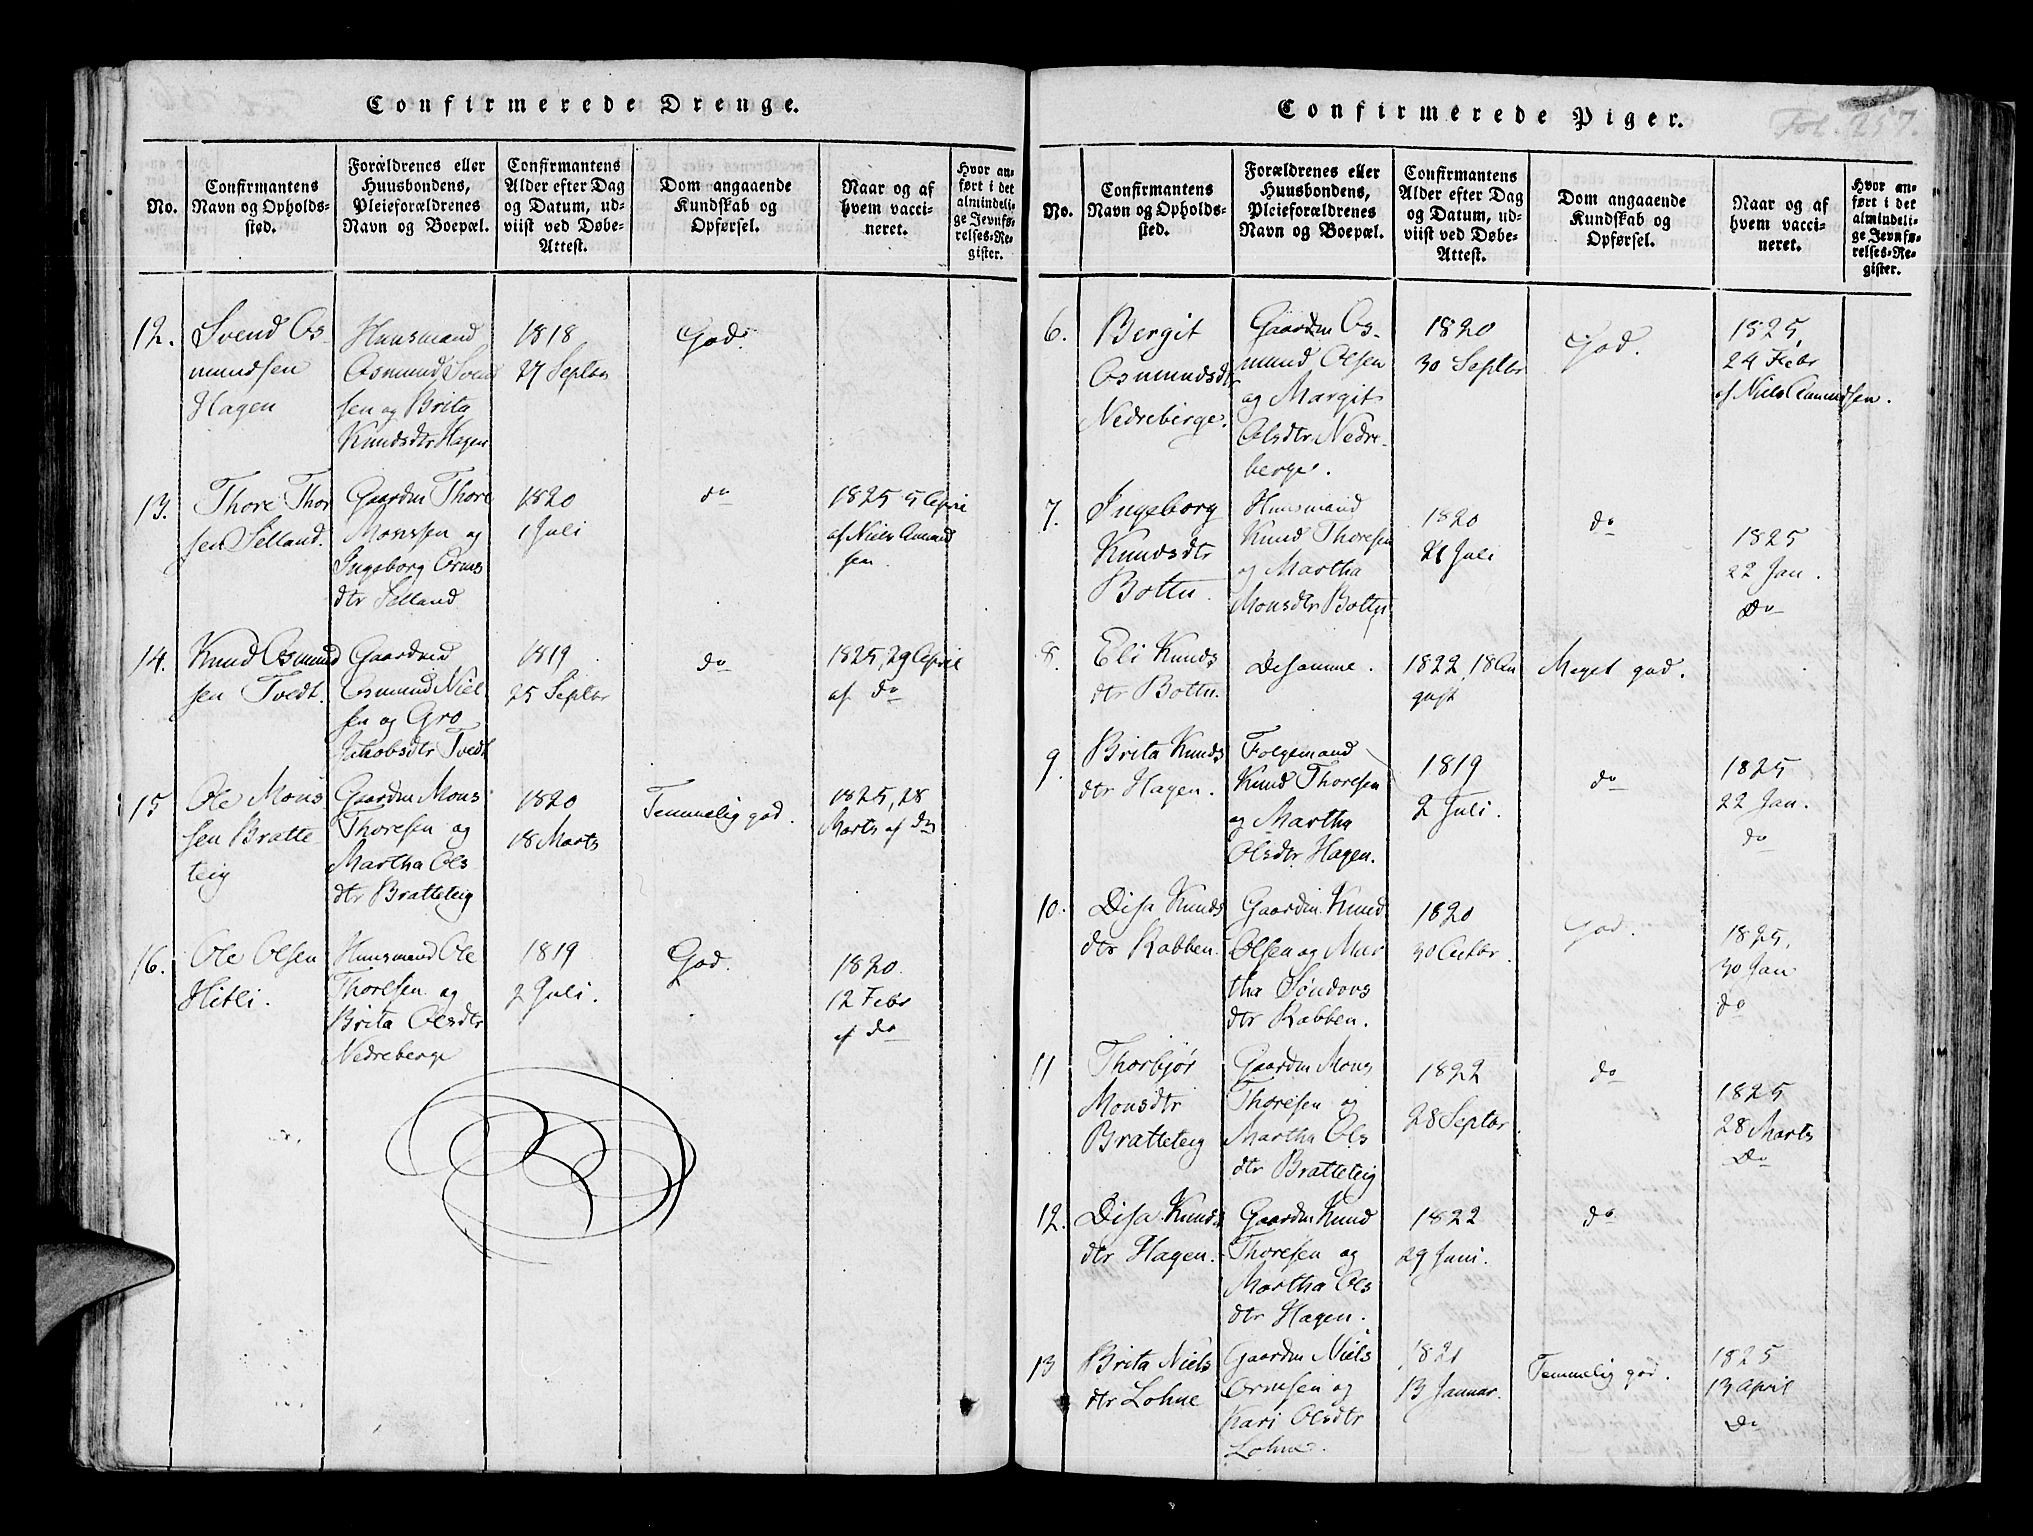 Confirmerede Drenge.
No.
Confirmantens
Navn og Opholds-
sted.
Forældrenes eller
Huusbondens,
Pleieforældrenes
Navn og Boepæl.
Confirmantens
Alder efter Dag
og Datum, ud-
viist ved Døbe-
Attest.
Dom angaaende
Kundskab og
Opførsel.
Naar og af
hvem vacci-
neret.
Hvor an-
ført i det
almindeli-
ge Jevnfø-
relses-Re-
gister.
12.
Svend Os-
mundsen
Hagen
Huusmand
Osmund Svend
sen og Brita
Knudsdtr Hagen
1818
27 Septbr
God.
13.
Thore Thor
sen Selland.
Gaardm Thore
Monssen og
Ingeborg Orms
dtr Selland
1820
1 Juli
do
1825 5 April
af Niels Amund
sen.
14.
Knud Osmund
sen Tvedt.
Osmund Niel
sen og Gro
Jakobsdtr Tvedt
1819
25 Septbr
do
1825, 29 April
af do
15
Ole Mons
sen Bratte-
teig
Gaardm Mons
Thoresen og
Martha Ols
dtr Bratteteig
1820
18 Marts
Temmelig god.
1825, 28
Marts af do
16.
Ole Olsen
Hitli.
Huusmand Ole
Thoresen og
Brita Olsdtr
Nedreberge
1819
2 Juli.
God.
1820.
12 Febr
af do
Confirmerede Piger.
Fol. 257.
No.
Confirmantens
Navn og Opholds-
sted.
Forældrenes eller
Huusbondens,
Pleieforældrenes
Navn og Boepæl.
Confirmantens
Alder efter Dag
og Datum, ud-
viist ved Døbe-
Attest.
Dom angaaende
Kundskab og
Opførsel.
Naar og af
hvem vacci-
neret.
Hvor an-
ført i det
almindeli-
ge Jevnfø-
relses-Re-
gister.
6.
Bergit
Osmundsdtr
Nedreberge.
Gaardm Os-
mund Olsen
og Margit
Olsdtr Nedre-
berge.
1820
30 Septbr
God.
1825,
24 Febr
af Niels Amundsen.
7.
Ingeborg
Knudsdtr
Bottn.
Huusmand
Knud Thoresen
og Martha
Monsdtr Bottn.
1820
21 Juli
do
1825
22 Jan.
Do
8.
Eli Knuds
dtr Bottn.
Desamme.
1822, 18 Au
gust
Meget god.
9.
Brita Knuds
dtr Hagen.
Folgemand
Knud Thoresen
og Martha
Olsdtr Hagen.
1819
2 Juli.
do
1825
22 Jan.
do
10.
Disa Knuds
dtr Rabben.
Gaardm. Knud
Olsen og Mar
tha Søndovs
dtr Rabben.
1820
30 Octbr.
God.
1825,
30 Jan
do
11
Thorbjør
Monsdtr
Bratteteig
Gaardm Mons
Thoresen og
Martha Ols
dtr Bratteteig
1822
28 Septbr.
do
1825
28 Marts
Do
12.
Disa Knuds
dtr Hagen.
Gaardm Knud
Thoresen og
Martha Ols
dtr Hagen.
1822
29 Juni.
do
13
Brita Niels
dtr Lohne
Gaardm Niels
Ormsen og
Kari Olsdtr
Lohne.
1821
13 Januar.
Temmelig god.
1825
13 April
Do